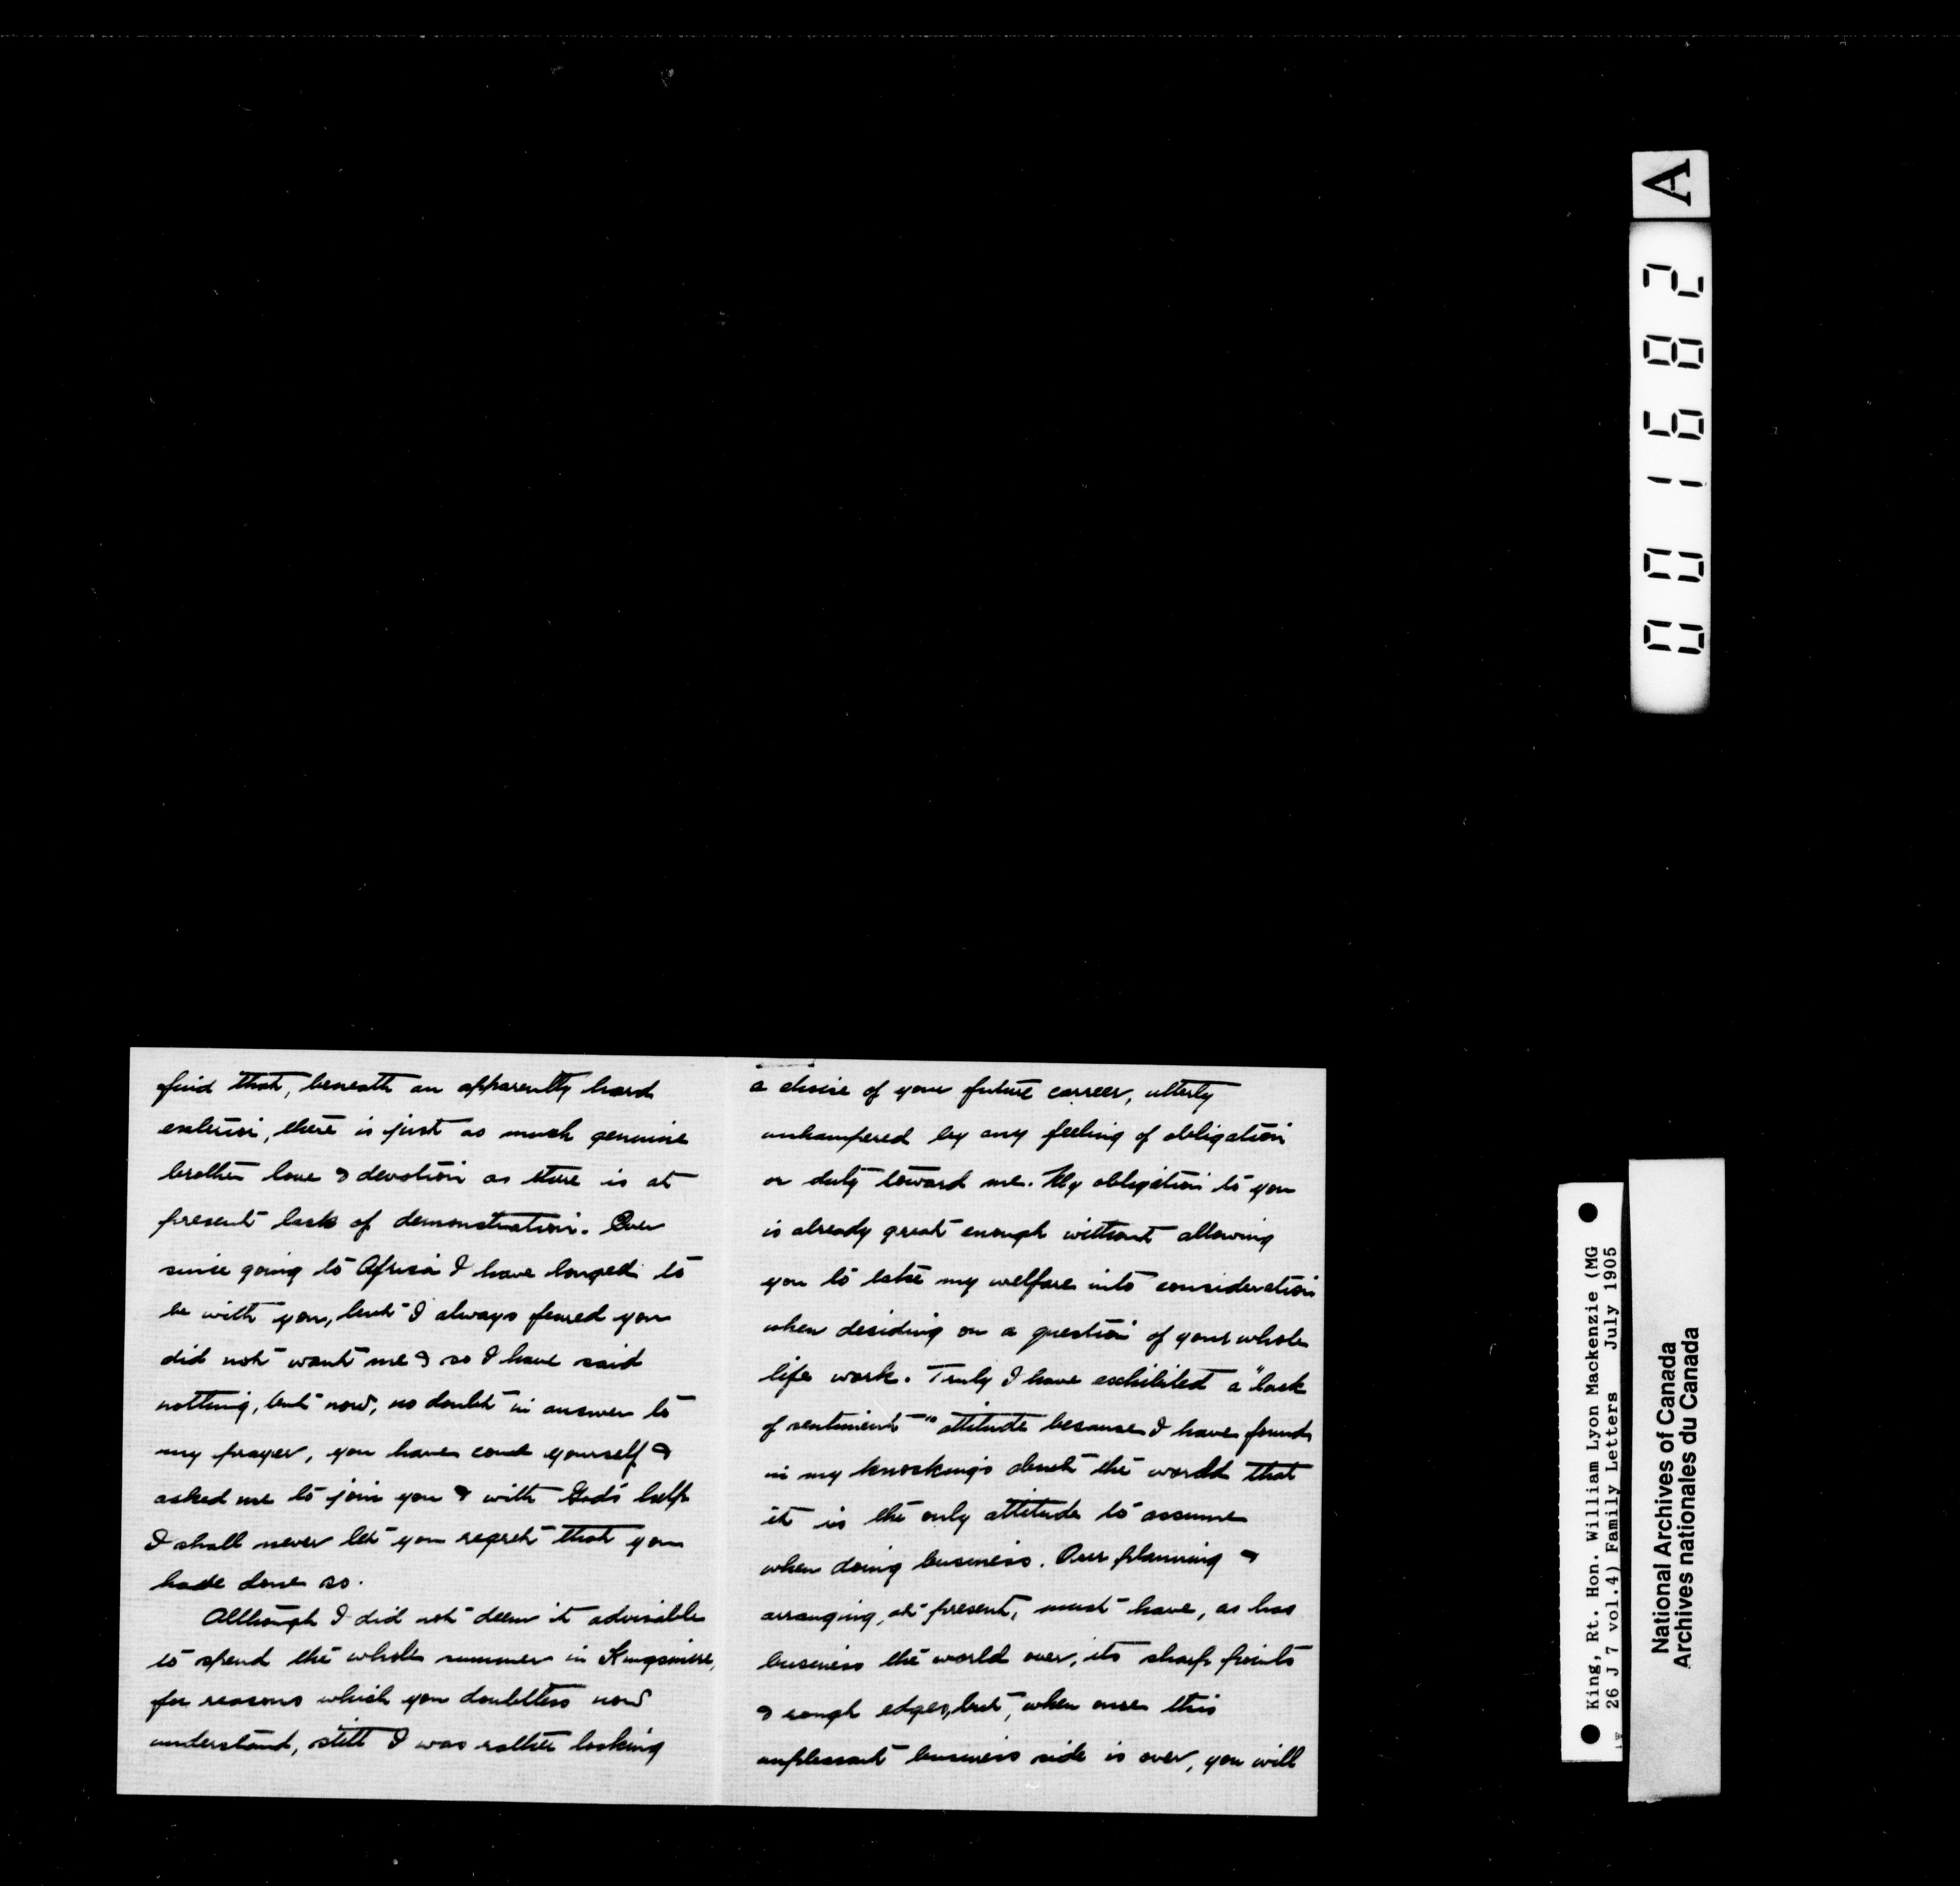 find that, beneath an apparently hard
exterior, there is just as much genuine
brother love & devotion as there is at
present lack of demonstration. Ever
since going to Africa I have longed to
be with you, but I always feared you
did not want me & so I have said
nothing, but now, no doubt in answer to
my prayer, you have come yourself &
asked me to join you & with God's help
I shall never let you regret that you
have done so.
Although I did not deem it advisable
to spend the whole summer in Kingsmere,
for reasons which you doubtless now
understand, still I was rather looking
a choice of your future carreer, utterly
unhampered by any feeling of obligation
or duty toward me. My obligation to you
is already great enough without allowing
you to take my welfare into consideration
when deciding on a question of your whole
life work. Truly I have exhibited a "lack
of sentiment" attitude because I have found
in my knockings about the world that
it is the only attitude to assume
when doing business. Our planning &
arranging, at present, must have, as has
business the world over, its sharp points
& rough edges, but, when once this
unpleasant business side is over, you will
A
001682
King, Rt. Hon. William Lyon Mackenzie (MG
26 J 7 vol.4) Family Letters July 1905
National Archives of Canada
Archives nationales du Canada